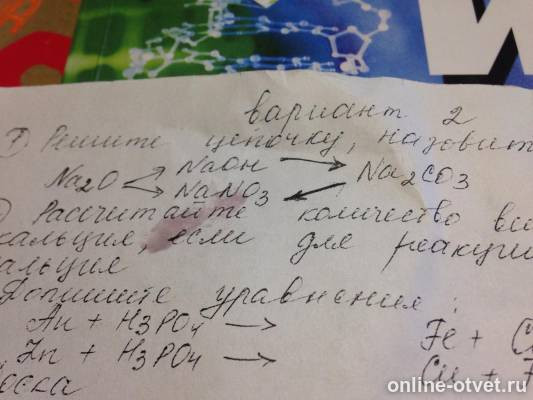 вариант 2
1) Решите цепочку, назовит
NaOH
Na2O Na2CO3
NaNO3
) Рассчитайте количество ве
кальция, если для реакции
альция
Допишите уравнения:
Au + H3PO4 → Fe + C
Zn + H3PO4 → Cu +
оска
online-otvet.ru